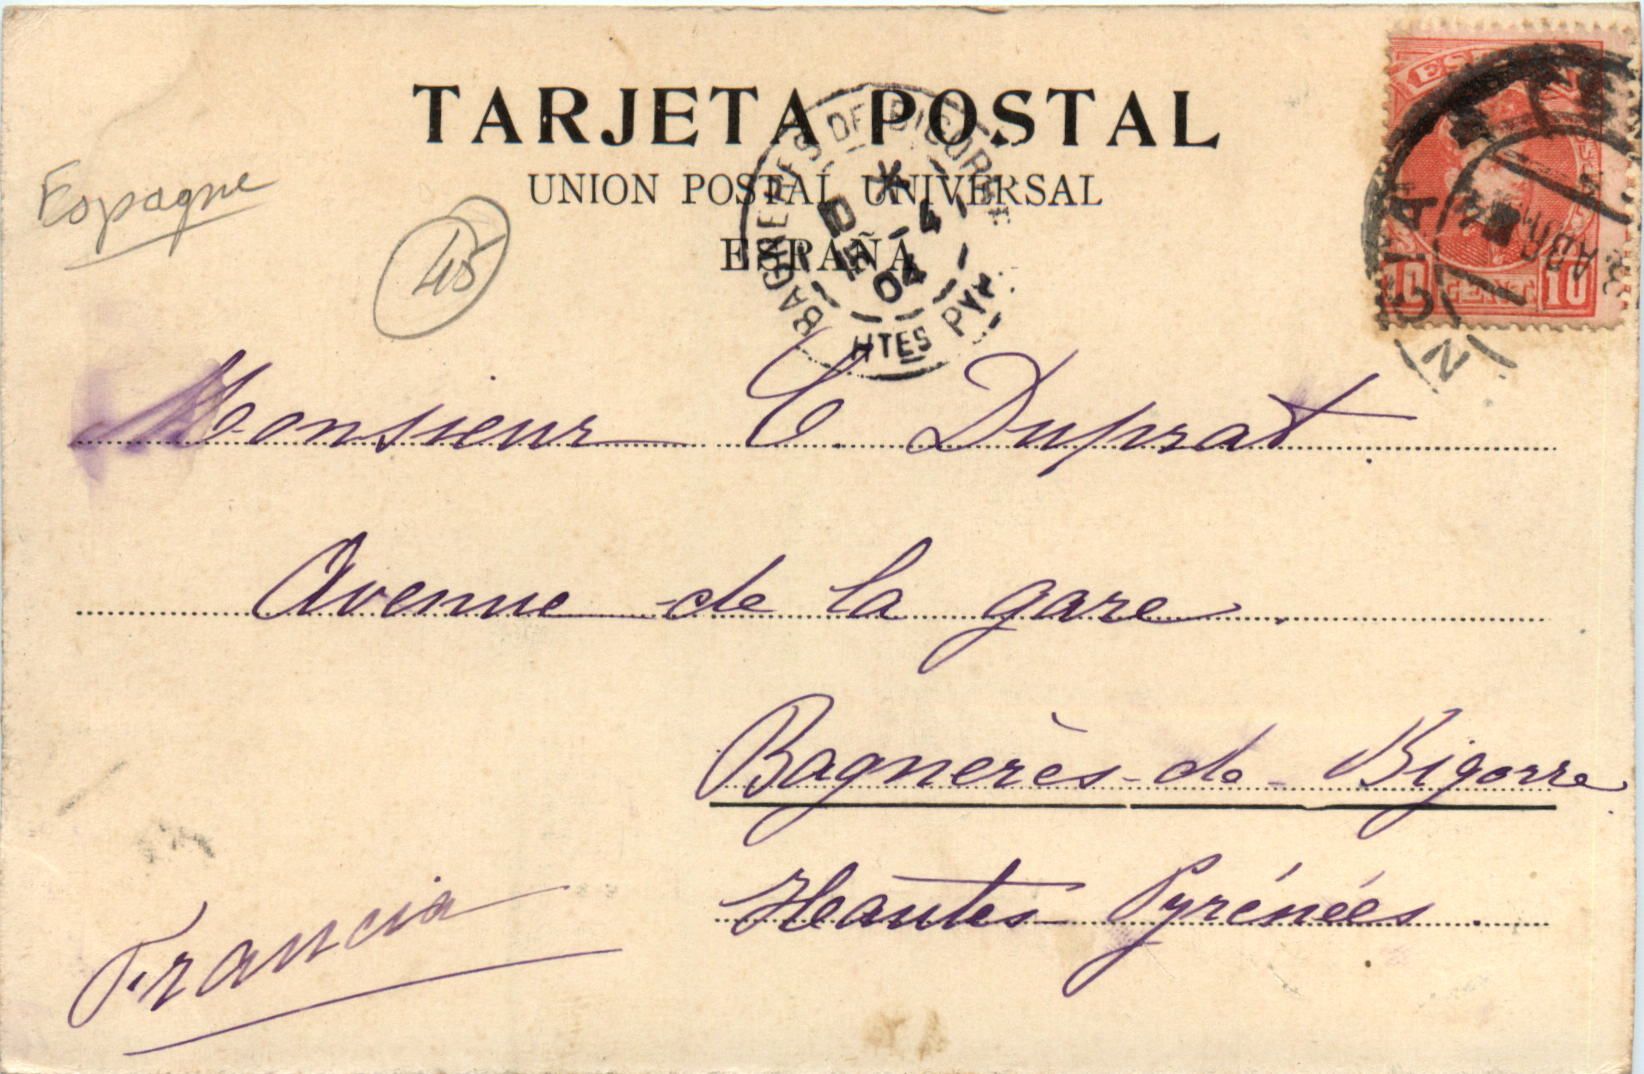 TARJETA POSTAL
UNION POSTAL UNIVERSAL
ESPAÑA
Espagne
45
BAGNERES DE BIGORRE
15 -4
04
HTES PYR
10 CENT 10
NCIA
ABR
Monsieur C. Duprat
Avenue de la gare.
Bagnerès-de-Bigorre
Hautes Pyrénées.
Francia